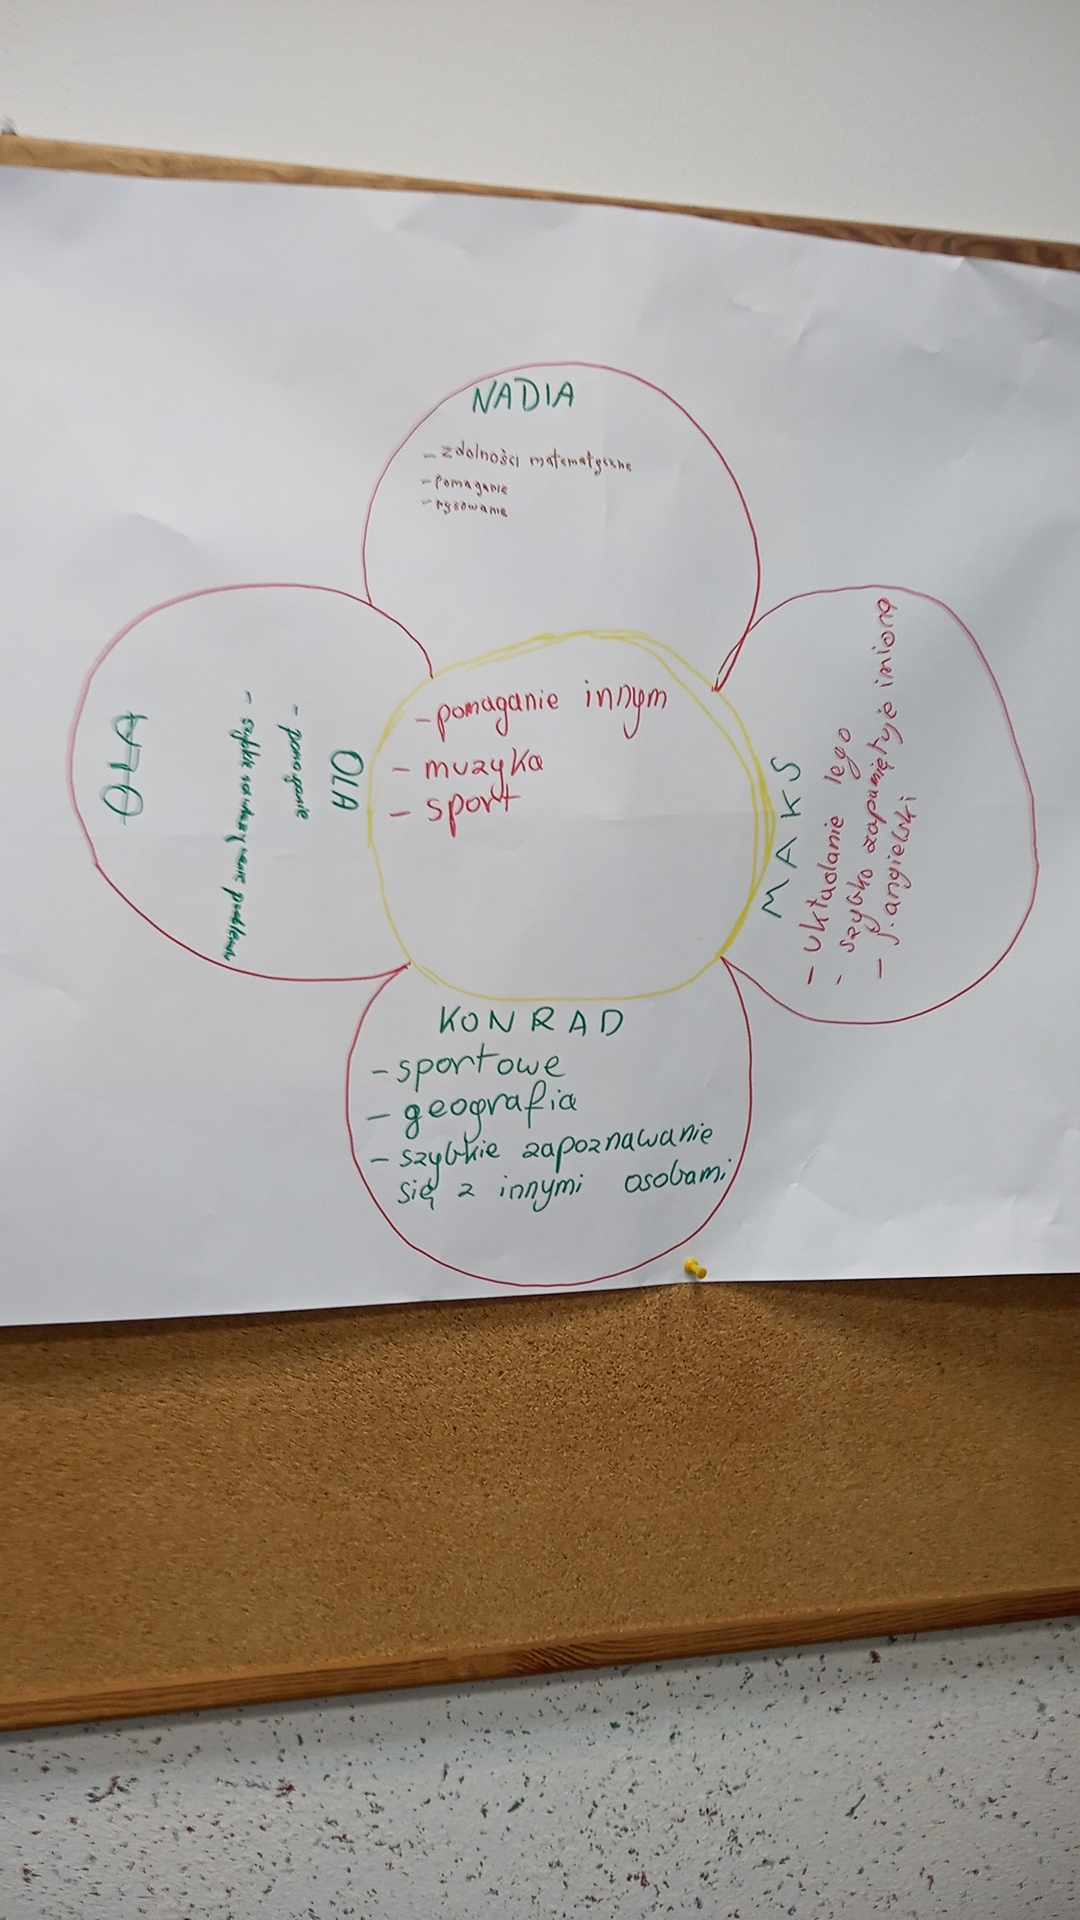 NADIA
- zdolności matematyczne
- pomaganie
- rysowanie
- pomaganie innym
- muzyka
- sport
MAKS
- układanie lego
- szybko zapamiętuje imiona
- j. angielski
OLA
- pomaganie
- szybkie rozwiązywanie problemu
KONRAD
- sportowe
- geografia
- szybkie zapoznawanie
się z innymi osobami